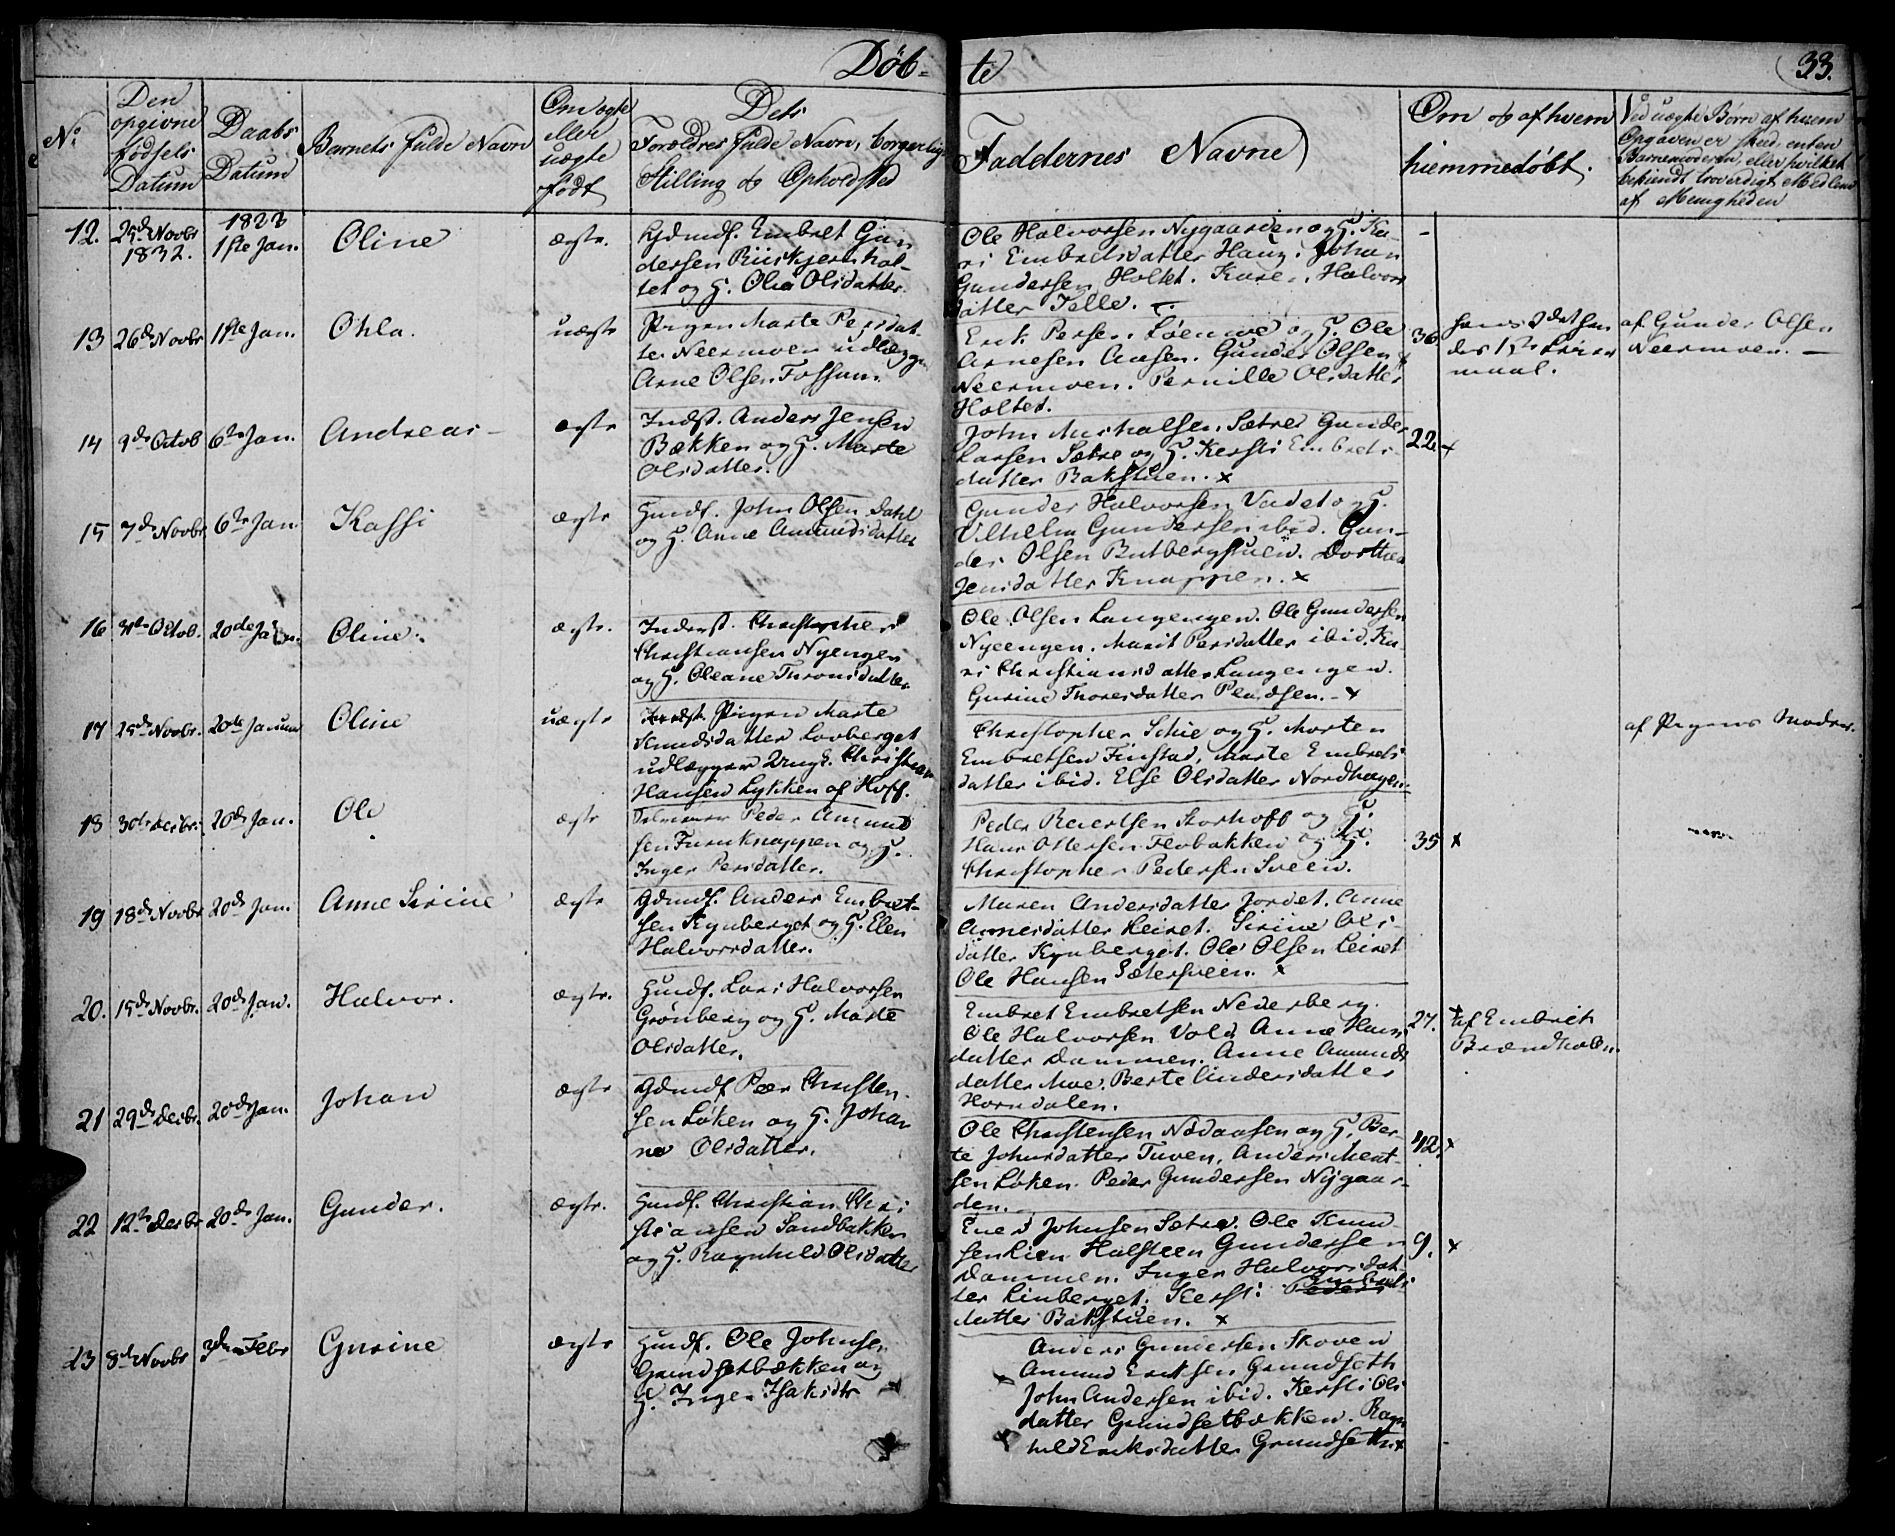 Døb-
te
33.
No.
Den opgivne fødsels Datum
Daabs Datum
Barnets fulde Navn
Om ægte eller uægte født
Dets Forældres fulde Navn, borgerlig Stilling og Opholdsted
Faddernes Navne
Om og af hvem hiemmedøbt.
Ved uægte Børn af hvem Opgaven er skeed, enten Barnemoderen, eller hvilket bekiendt troværdigt Medlem af Menigheden
12.
25de Novbr 1832.
1833 1ste Jan.
Oline
ægte.
Gdmdf. Embret Gun
dersen Riiskjernhol-
tet og H. Olea Olsdatter
Ole Halvorsen Nygaarden og H. Ka-
ri Embretsdatter Haug. Johan
Gundersen Holtet. Karen Halvors
datter Telle.
13
26de Novbr
1ste Jan.
Ohla.
uægte
Pigen Marte Persdat-
ter Neermoen udlægger
Arne Olsen Fossum.
Erik Persen Løenne og H. Ole
Arnesen Aasen. Gunder Olsen
Neermoen. Pernille Olsdatter
Holtet.
36
hans 2det hen
des 1ste Leier
maal.
af Gunder Olsen
Neermoen. —
14
9de Octob
6te Jan.
Andreas -
ægte
Indst. Anders Jensen
Bækken og H. Marte
Olsdatter.
John Michalsen Sætre Gunder
Larsen Sætre og H. Kersti Embrets-
datter Bakstuen. x
22. x
15
7de Novbr
6te Jan
Kassi
ægte
Huusdf. John Olsen Dahl
og H. Anne Amundsdatter
Gunder Halvorsen Vadet og H.
Vilhelm Gundersen ibid. Gun-
der Olsen Butbergstuen. Dorthea
Jensdatter Knappen. x
16
31te Octob.
20de Jan.
Oline.
ægte.
Inderst. Christopher
Christiansen Nyengen
og H. Oleane Tronsdatter
Ole Olsen Langengen. Ole Gundersen
Nyeengen. Marit Persdatter ibid. Ka-
ri Christiansdatter Langengen.
Gurine Thoresdatter Pladsen. - x
17
25de Novbr.
20de Januar
Oline
uægte
Pigen Marte
Knudsdatter Lovberget
udlægger Ungk. Christian
Hansen Lykken af Hoff.
Christopher Schie og H. Morten
Embretsen Finstad. Marte Embrets
datter ibid. Else Olsdatter Nordhagen
af Pigens Moder.
18
30te Decbr.
20de Jan.
Ole
ægte
Peder Amund
sen Furuknappen og H.
Inger Persdatter.
Peder Reiertsen Storhoff og H.
Hans Ottersen Flobakken og H.
Christopher Pedersen Sveen.
35 x
19
18de Novbr
20de Jan.
Anne Sirine
ægte
Gdmdf. Anders Embret-
sen Kynberget og H. Elen
Halvorsdatter.
Maren Andersdatter Jordet. Anne
Arnesdatter Leiret. Sirine Ols-
datter Kynberget. Ole Olsen Leiret
Ole Hansen Sætersveen. x
20.
15de Novbr.
20de Jan.
Halvor.
ægte.
Huusdf. Lars Halvorsen
Grønberg og H. Marte
Olsdatter.
Embret Embretsen Nederberg.
Ole Halvorsen Vold Anne Hans
datter Dammen. Anne Amunds
datter Moe. Berte Andersdatter
Horndalen.
27.
af Embrik
Brændholen.
21
29de Decbr.
20de Jan.
Johan
ægte
Gdmdf Peer Christen-
sen Løken og H. Johan
ne Olsdatter.
Ole Christensen Nødaasen og H. Ber-
te Johnsdatter Tuven, Anders Ment-
sen Løken. Peder Gundersen Nygaar-
den.
42. x
22
12te Decbr
20de Jan.
Gunder.
ægte.
Huusdf. Christian Chri
stiansen Sandbakken
og H. Ragnhild Olsdatter
Ener Johnsen Sætre. Ole Knud
sen Lien Halsteen Gundersen
Dammen. Inger Halvorsdat-
ter Linberget. Kersti Peders Embrets
datter Bakstuen. x
9. x
23
8de Novbr
3die Febr
Gurine
ægte
Huusdf. Ole Johnsen
Grundsetbækken og
H. Inger Isaksdtr
Anders Gundersen Skoven
Amund Eriksen Grundseth
John Andersen ibid. Kersti Ols
datter Grundsetbækken. Ragn
hild Eriksdatter Grundseth x